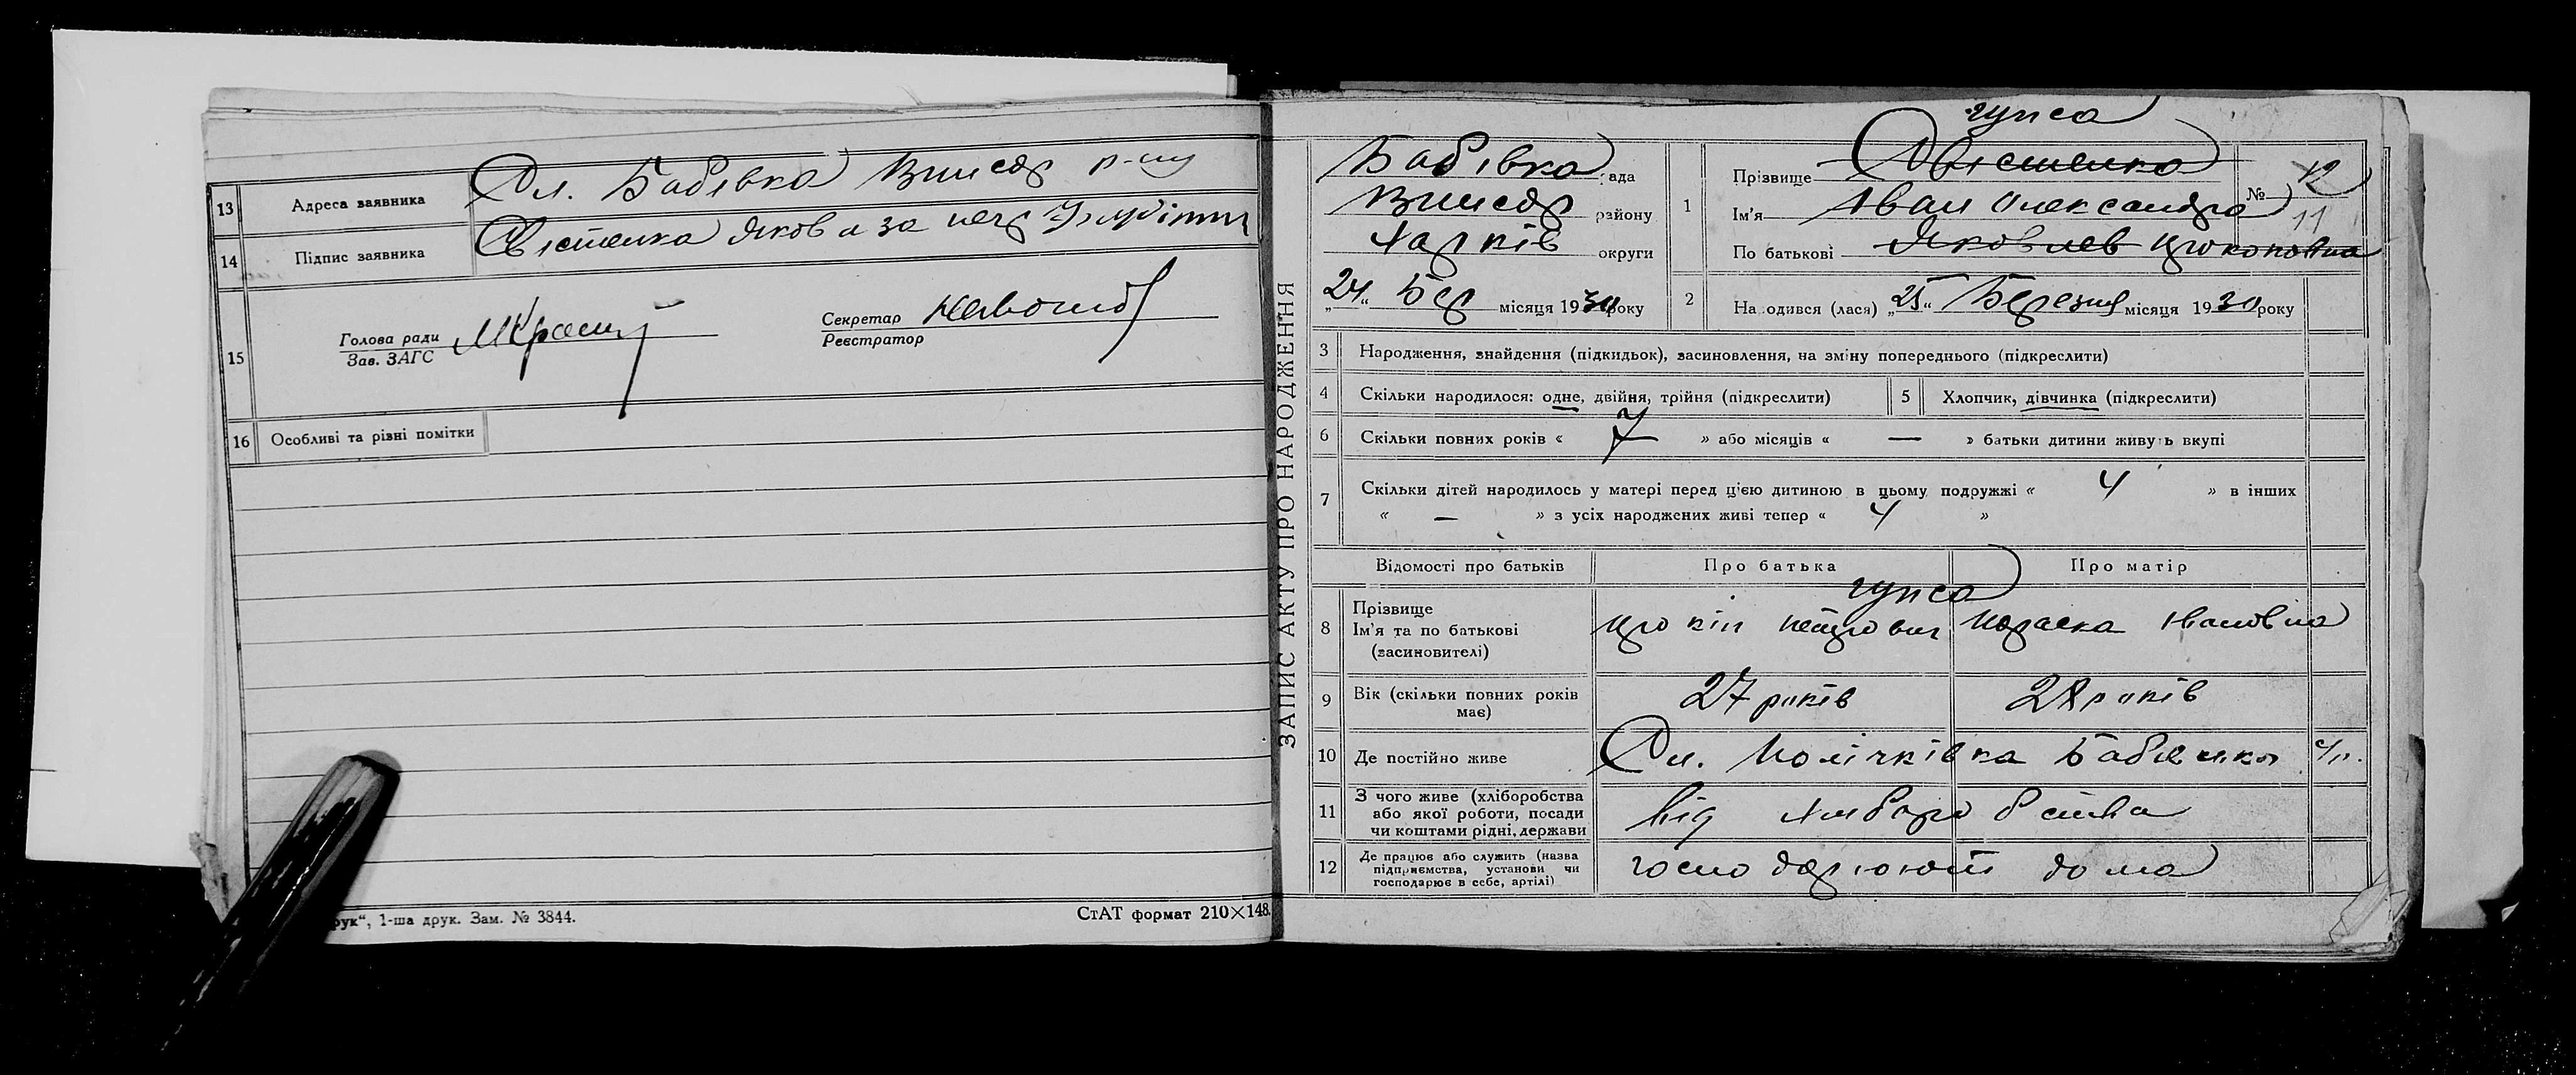 13 Адреса заявника Сл. Бабівка Винсдр р-ну
14 Підпис заявника Свістенка Яков а за
15 Голова ради Зав. ЗАГС Секретар Реєстратор
16 Особливі та різні помітки
рук“, 1-ша друк. Зам. № 3844.
СтАТ формат 210×148.
ЗАПИС АКТУ ПРО НАРОДЖЕННЯ
Бабівка рада
району
Харків округи
„24“ Бер місяця 1930 року
гупса
1 Прізвище Свістенко
№ 12
11
Ім'я Іван Олександра
По батькові Яковлев Прокоповна
2 Народився (лася) „25“ Березня місяця 1930 року
3 Народження, знайдення (підкидьок), засиновлення, на зміну попереднього (підкреслити)
4 Скільки народилося: одне, двійня, трійня (підкреслити) 5 Хлопчик, дівчинка (підкреслити)
6 Скільки повних років « 7 » або місяців « — » батьки дитини живуть вкупі
7 Скільки дітей народилось у матері перед цією дитиною в цьому подружжі « 4 » в інших
« — » з усіх народжених живі тепер « 4 »
Відомості про батьків Про батька Про матір
гупса
8 Прізвище
Ім'я та по батькові Прокіп Петрович Параска Івановна
(засиновителі)
9 Вік (скільки повних років має) 27 років 28 років
10 Де постійно живе Сл.
11 З чого живе (хліборобства
або якої роботи, посади від хліборобства
чи коштами рідні, держави
12 Де працює або служить (назва
підприємства, установи чи господарюють дома
господарює в себе, артілі)